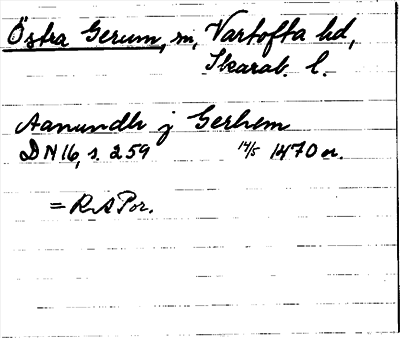 Östra Gerum, sn, Vartofta hd,
Skarab. l.
Aanundh j Gerhem
DN16, s. 259 14/5 1470 or.
= RAPor.